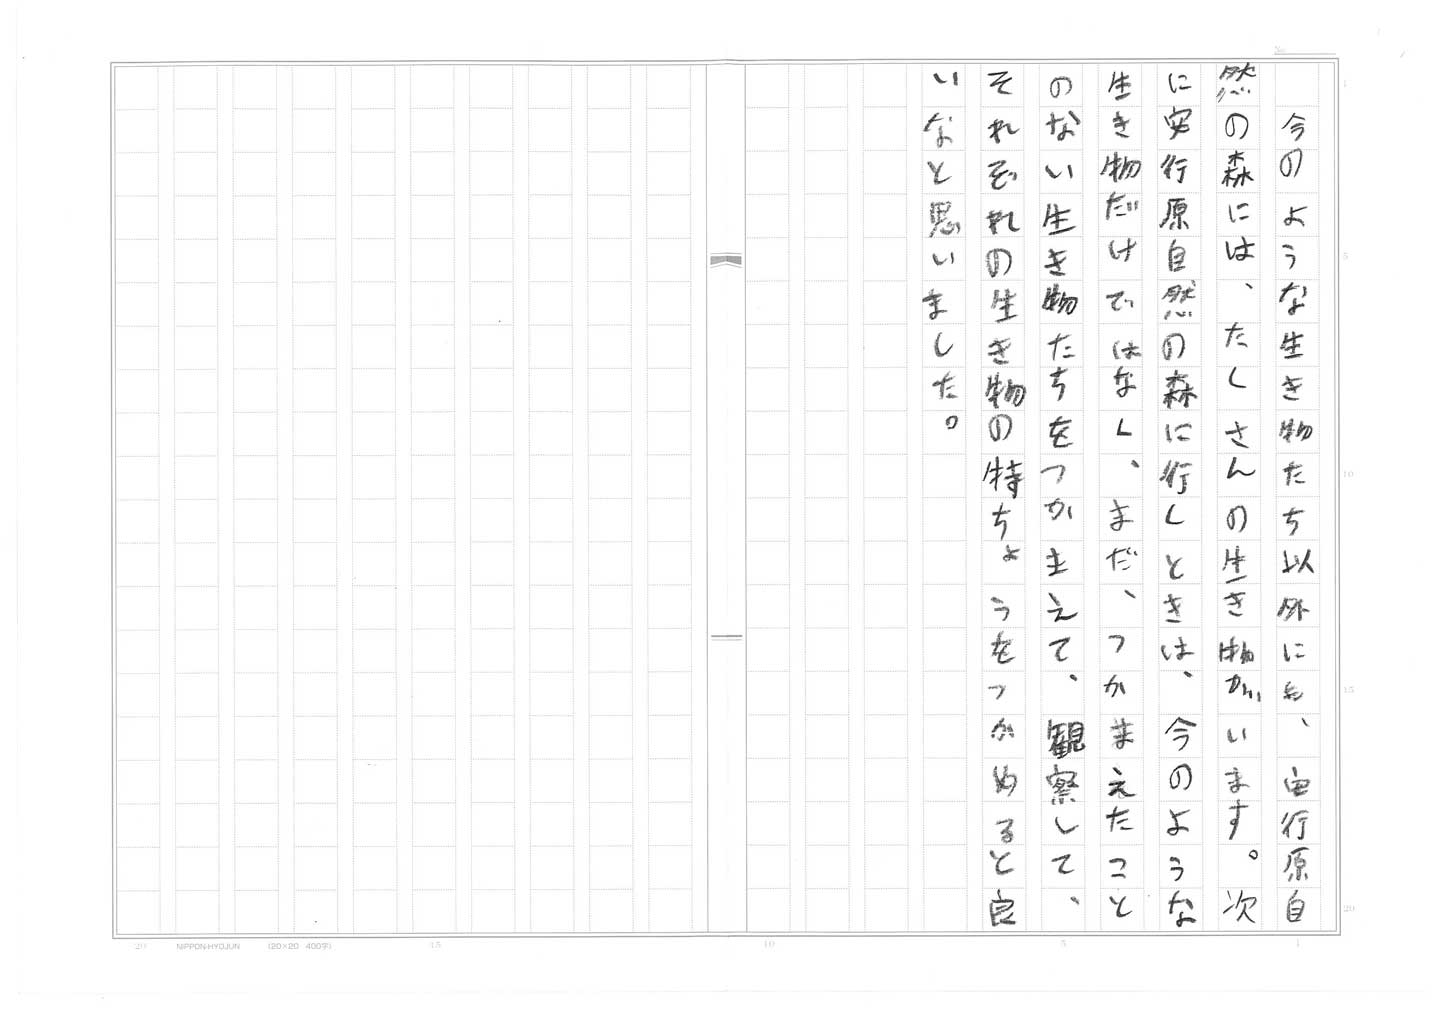 No.
今のような生き物たち以外にも、安行原自
然の森には、たくさんの生き物がいます。次
に安行原自然の森に行くときは、今のような
生き物だけではなく、まだ、つかまえたこと
のない生き物たちをつかまえて、観察して、
それぞれの生き物の特ちょうをつかめると良
いなと思いました。
1
5
10
15
20
20 NIPPON-HYOJUN (20×20 400字) 15 10 5 1